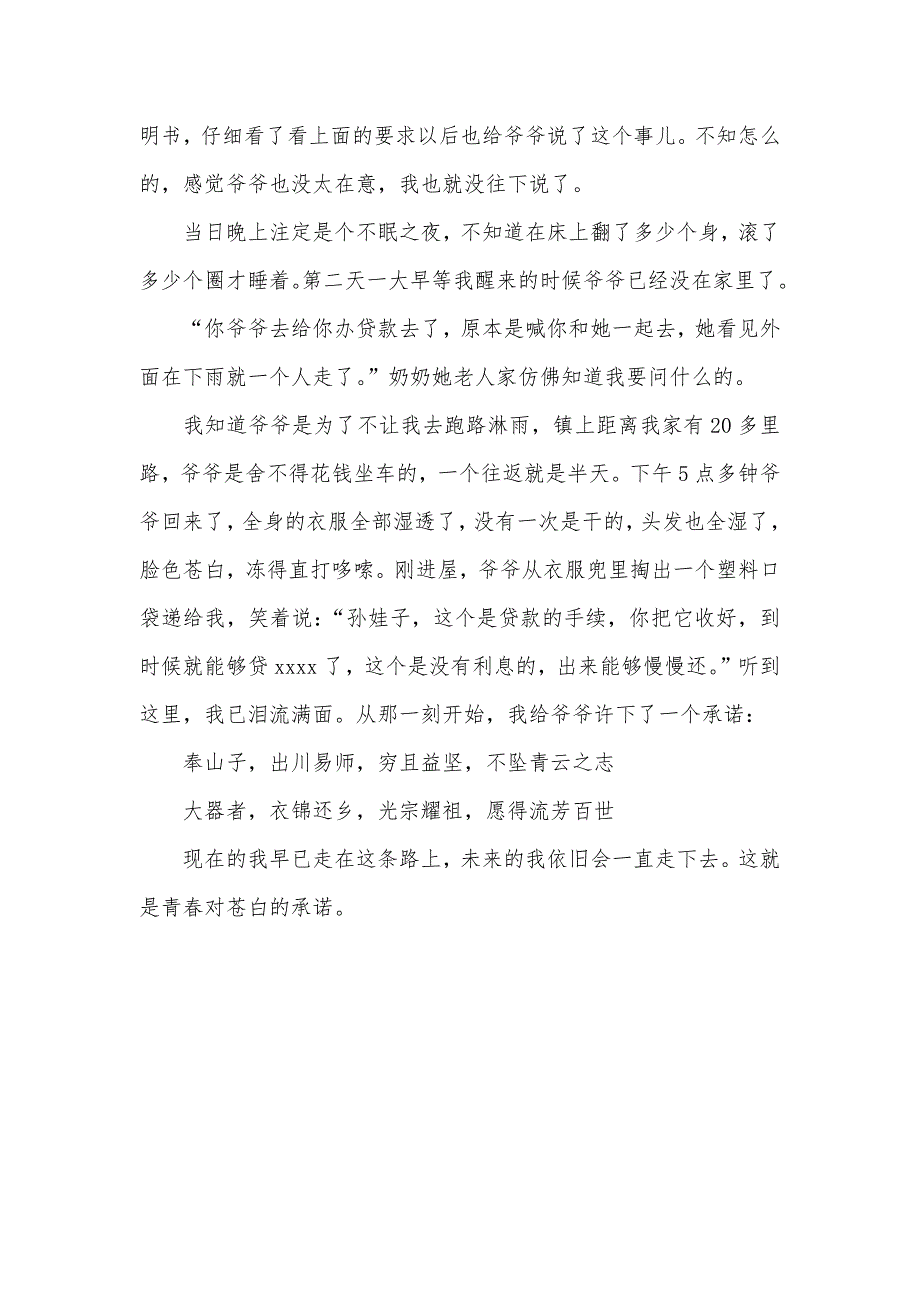 明书，仔细看了看上面的要求以后也给爷爷说了这个事儿。不知怎么
的，感觉爷爷也没太在意，我也就没往下说了。
当日晚上注定是个不眠之夜，不知道在床上翻了多少个身，滚了
多少个圈才睡着。第二天一大早等我醒来的时候爷爷已经没在家里了。
“你爷爷去给你办贷款去了，原本是喊你和她一起去，她看见外
面在下雨就一个人走了。”奶奶她老人家仿佛知道我要问什么的。
我知道爷爷是为了不让我去跑路淋雨，镇上距离我家有 20 多里
路，爷爷是舍不得花钱坐车的，一个往返就是半天。下午 5 点多钟爷
爷回来了，全身的衣服全部湿透了，没有一次是干的，头发也全湿了，
脸色苍白，冻得直打哆嗦。刚进屋，爷爷从衣服兜里掏出一个塑料口
袋递给我，笑着说：“孙娃子，这个是贷款的手续，你把它收好，到
时候就能够贷 xxxx 了，这个是没有利息的，出来能够慢慢还。”听到
这里，我已泪流满面。从那一刻开始，我给爷爷许下了一个承诺：
奉山子，出川易师，穷且益坚，不坠青云之志
大器者，衣锦还乡，光宗耀祖，愿得流芳百世
现在的我早已走在这条路上，未来的我依旧会一直走下去。这就
是青春对苍白的承诺。